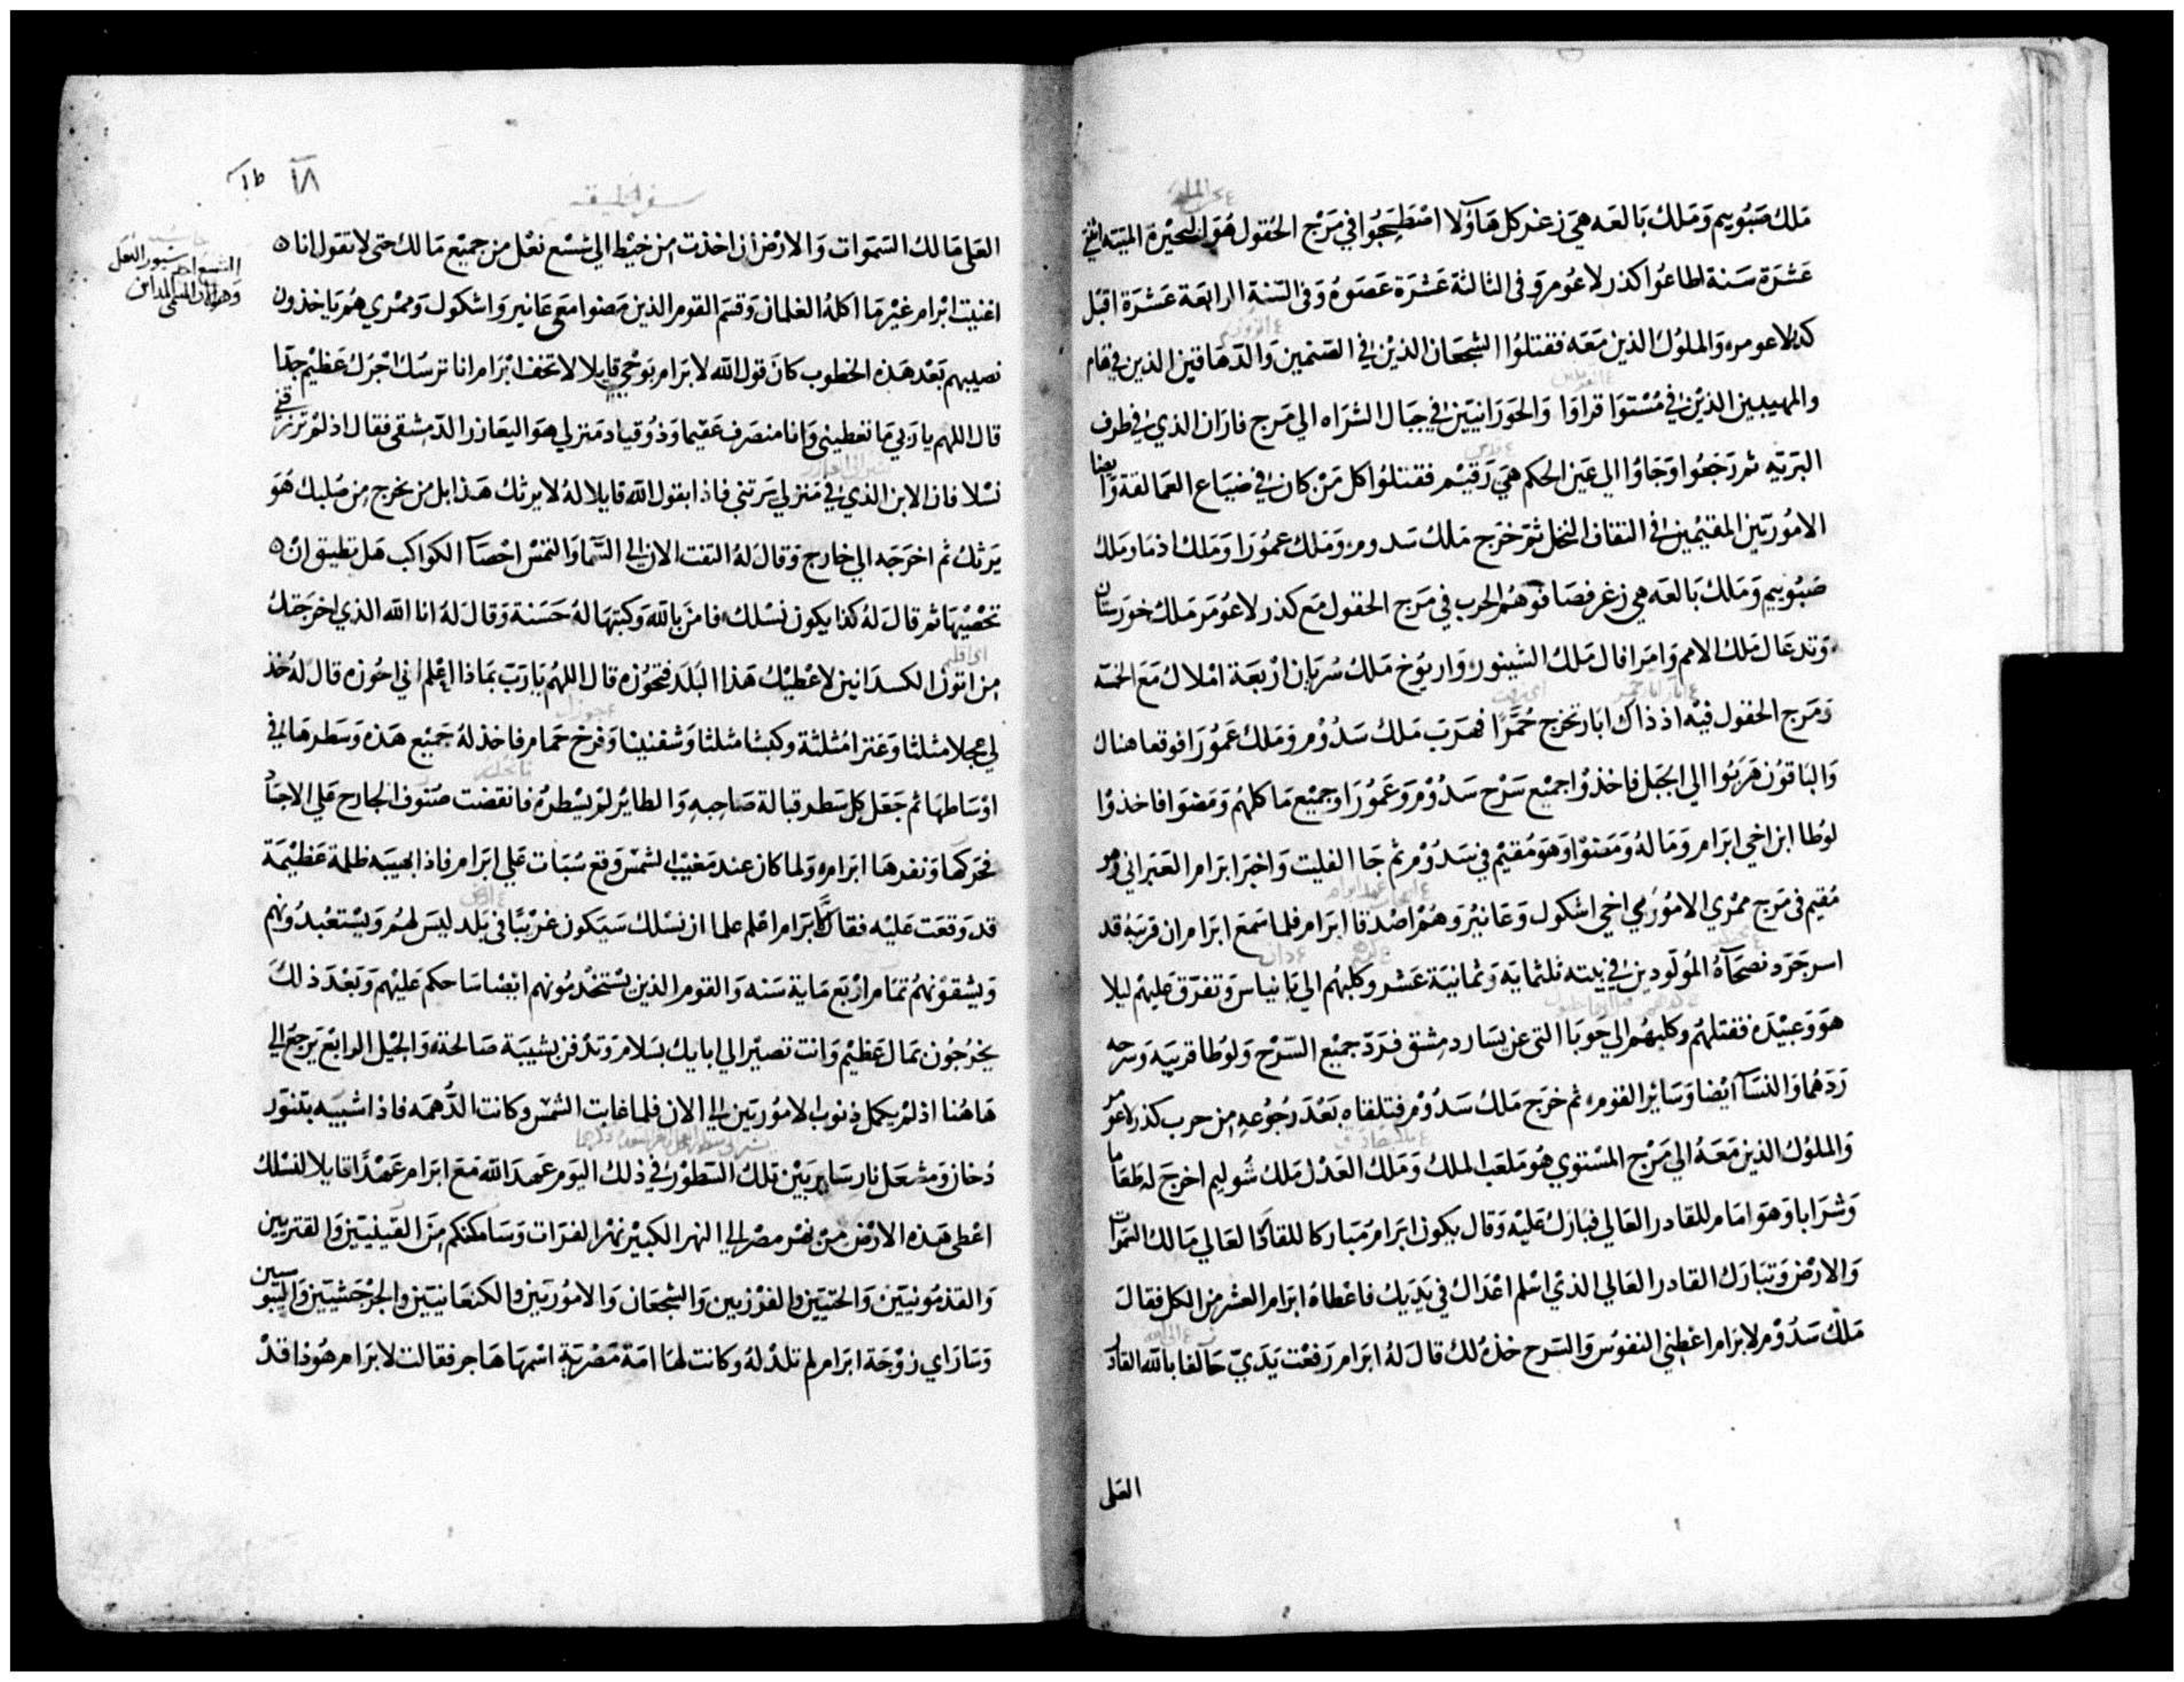 ملك صبوييم وملك بالعه هي زغر كل هاولا اصطحبوا في مرج الحقول هو البحيرة الميته اثني
عشرة سنة اطاعوا كذرلاعومر وفي الثالثة عشرة عصوه وفي السنة الرابعة عشرة اقبل
كدرلاعومر والملوك الذين معه فقتلوا الشجعان الذين في الصنمين والدهاقين الذين في هام
والمهيبين الذين في مستوا قراوا والحورانيين في جبال الشراه الي مرج فاران الذي في طرف
البريه ثم رجعوا وجاوا الي عين الحكم هي رقيم فقتلوا كل من كان في ضياع العمالقة وايضا
الاموريين المقيمين في التفاف النخل ثم خرج ملك سدوم وملك عمورا وملك اذما وملك
صبوييم وملك بالعه هي زغر فصافوهم الحرب في مرج الحقول مع كذرلاعومر ملك خورستان
وتدعال ملك الامم وامرافال ملك الشينور واريوخ ملك سريان اربعة املاك مع الخمسه
ومرج الحقول فيه اذ ذاك ابار تخرج حمرا فهرب ملك سدوم وملك عمورا فوقعا هناك
والباقون هربوا الي الجبل فاخذوا جميع سرح سدوم وعمورا وجميع ماكلهم ومضوا فاخذوا
لوطا ابن اخي ابرام وماله ومضوا وهو مقيم في سدوم ثم جا الفليت واخبر ابرام العبراني وهو
مقيم في مرج ممري الاموري اخي اشكول وعانير وهم اصدقا ابرام فلما سمع ابرام ان قريبه قد
اسر جرد نصحآه المولودين في بيته ثلثمايه وثمانية عشر وكلبهم الي بانياس وتفرق عليهم ليلا
هو وعبيده فقتلهم وكلبهم الي حوبا التي عن يسار دمشق فرد جميع السرح ولوطا قريبه وسرحه
ردهما والنسآ ايضا وساير القوم ثم خرج ملك سدوم فتلقاه بعد رجوعه من حرب كذرلاعومر
والملوك الذين معه الي مرج المستوي هو ملعب الملك وملك العدل ملك شوليم اخرج له طعاما
وشرابا وهو امام للقادر العالي فبارك عليه وقال يكون ابرام مباركا للقادر العالي مالك السموات
والارض وتبارك القادر العالي الذي اسلم اعداك في يديك فاعطاه ابرام العشر من الكل فقال
ملك سدوم لابرام اعطني النفوس والسرح خذه لك قال له ابرام رفعت يدي حالفا بالله القادر
العلى
١٨
سفر الخليقه
العلى مالك السموات والارض ان اخذت من خيط الي شسع نعل من جميع مالك حتى لا تقول انا
اغنيت ابرام غير ما اكله الغلمان وقسم القوم الذين مضوا معي عانير واشكول وممري هم ياخذون
نصيبهم بعد هذه الخطوب كان قول الله لابرام بوحي قايلا لا تخف ابرام انا ترسك اجرك عظيم جدا
قال اللهم يا ربي ما تعطيني وانا منصرف عقيما وذو قياد منزلي هو اليعازر الدمشقي فقال اذ لم ترزقني
نسلا فان الابن الذي في منزلي يرثني فاذا بقول الله قايلا له لا يرثك هذا بل من يخرج من صلبك هو
يرثك ثم اخرجه الي خارج وقال له التفت الان الي السما والتمس احصآ الكواكب هل تطيق ان
تحصيها ثم قال له كذا يكون نسلك فامن بالله وكتبها له حسنة وقال له انا الله الذي اخرجتك
من اتون الكسدانيين لاعطيك هذا البلد فتحوزه قال اللهم يا رب بماذا اعلم اني احوزه قال له خذ
لي عجلا مثلثا وعنزا مثلثة وكبشا مثلثا وشفنينا وفرخ حمام فاخذ له جميع هذه وسطرها في
اوساطها ثم جعل كل سطر قبالة صاحبه والطاير لم يسطره فانقضت صنوف الجارح علي الاجساد
فحركها ونفرها ابرام ولما كان عند مغيب الشمس وقع سبات علي ابرام فاذا بهيبه ظلمة عظيمة
قد وقعت عليه فقال لابرام اعلم علما ان نسلك سيكون غريبا في بلد ليس لهم ويستعبدونهم
ويشقونهم تمام اربع ماية سنه والقوم الذين يستخدمونهم ايضا ساحكم عليهم وبعد ذلك
يخرجون بمال عظيم وانت تصير الي ابايك بسلام وتدفن بشيبة صالحة والجيل الرابع يرجع الي
هاهنا اذ لم يكمل ذنوب الاموريين الي الان فلما غابت الشمس وكانت الدهمه فاذا شبيه بتنور
دخان ومشعل نار ساير بين تلك السطور في ذلك اليوم عهد الله مع ابرام عهدا قايلا لنسلك
اعطي هذه الارض من نهر مصر الي النهر الكبير نهر الفرات وساملككم من القينيين والقنزيين
والقذمونيين والحتيين والفوزيين والشجعان والاموريين والكنعانيين والجرجشيين واليبوسيين
وساراي زوجة ابرام لم تلد له وكانت لها امة مصرية اسمها هاجر فقالت لابرام هوذا قد